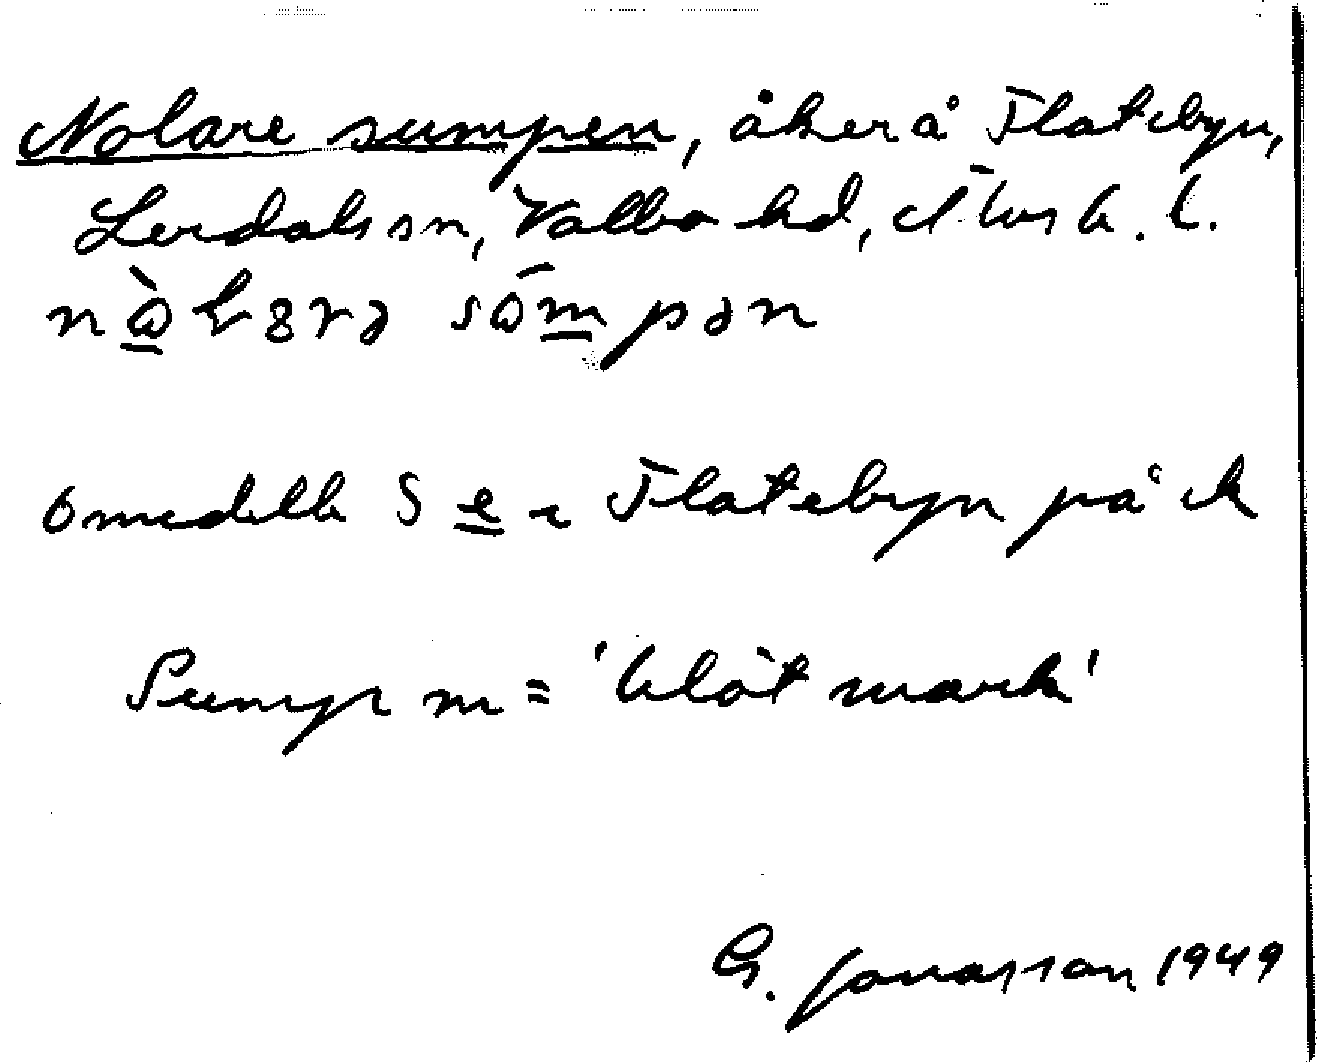 Nolare sumpen, åker å Flatebyn,
Lerdals sn, Valbo hd, Älvsb. l.
sômpən
omedelb S e Flatebyn på ek
Sump m = 'blöt mark'
G. Jonasson 1949